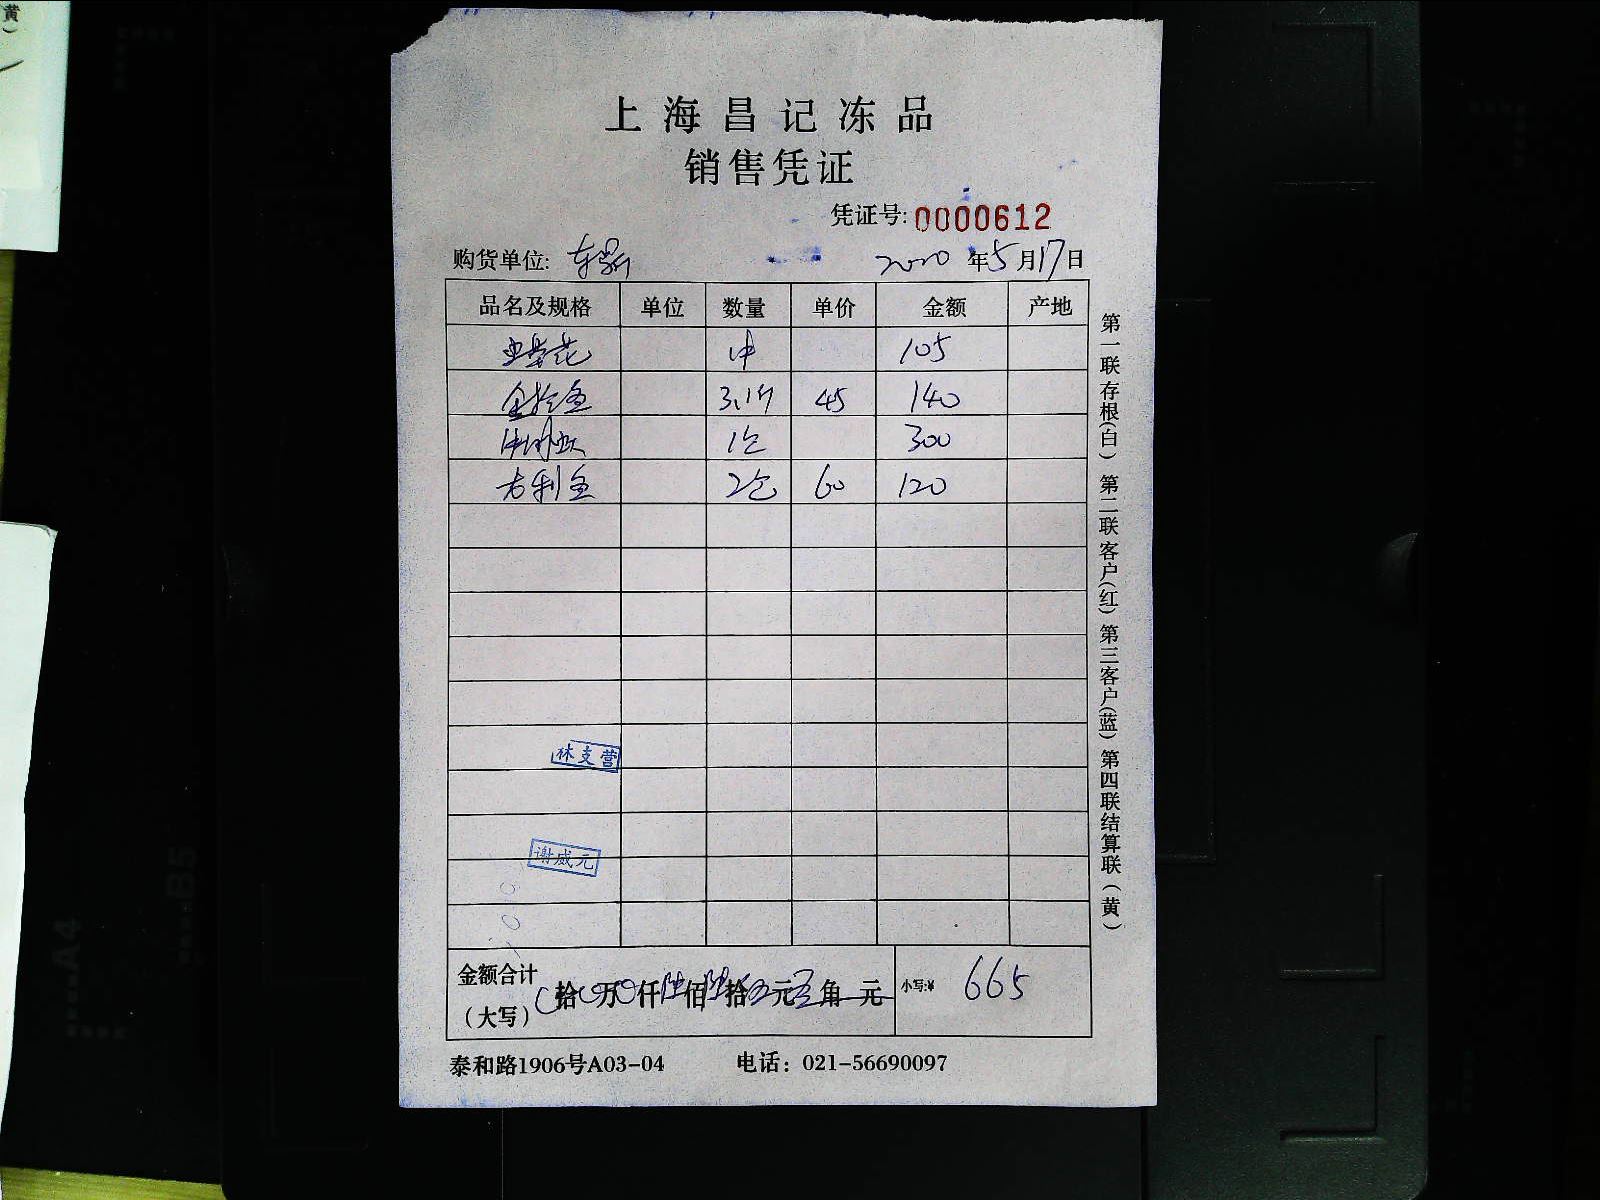 黄
)
上海昌记冻品
销售凭证
凭证号:0000612
购货单位: 2020年5月17日
品名及规格 单位 数量 单价 金额 产地
105
3.1斤 45 140
1包 300
吉利鱼 2包 60 120
林支营
谢威元
金额合计
(大写)
拾 万 仟陆佰陆拾伍元 角 元 小写:¥ 665
泰和路1906号A03-04 电话：021-56690097
第一联存根(白) 第二联客户(红) 第三客户(蓝) 第四联结算联(黄)
A4
B5